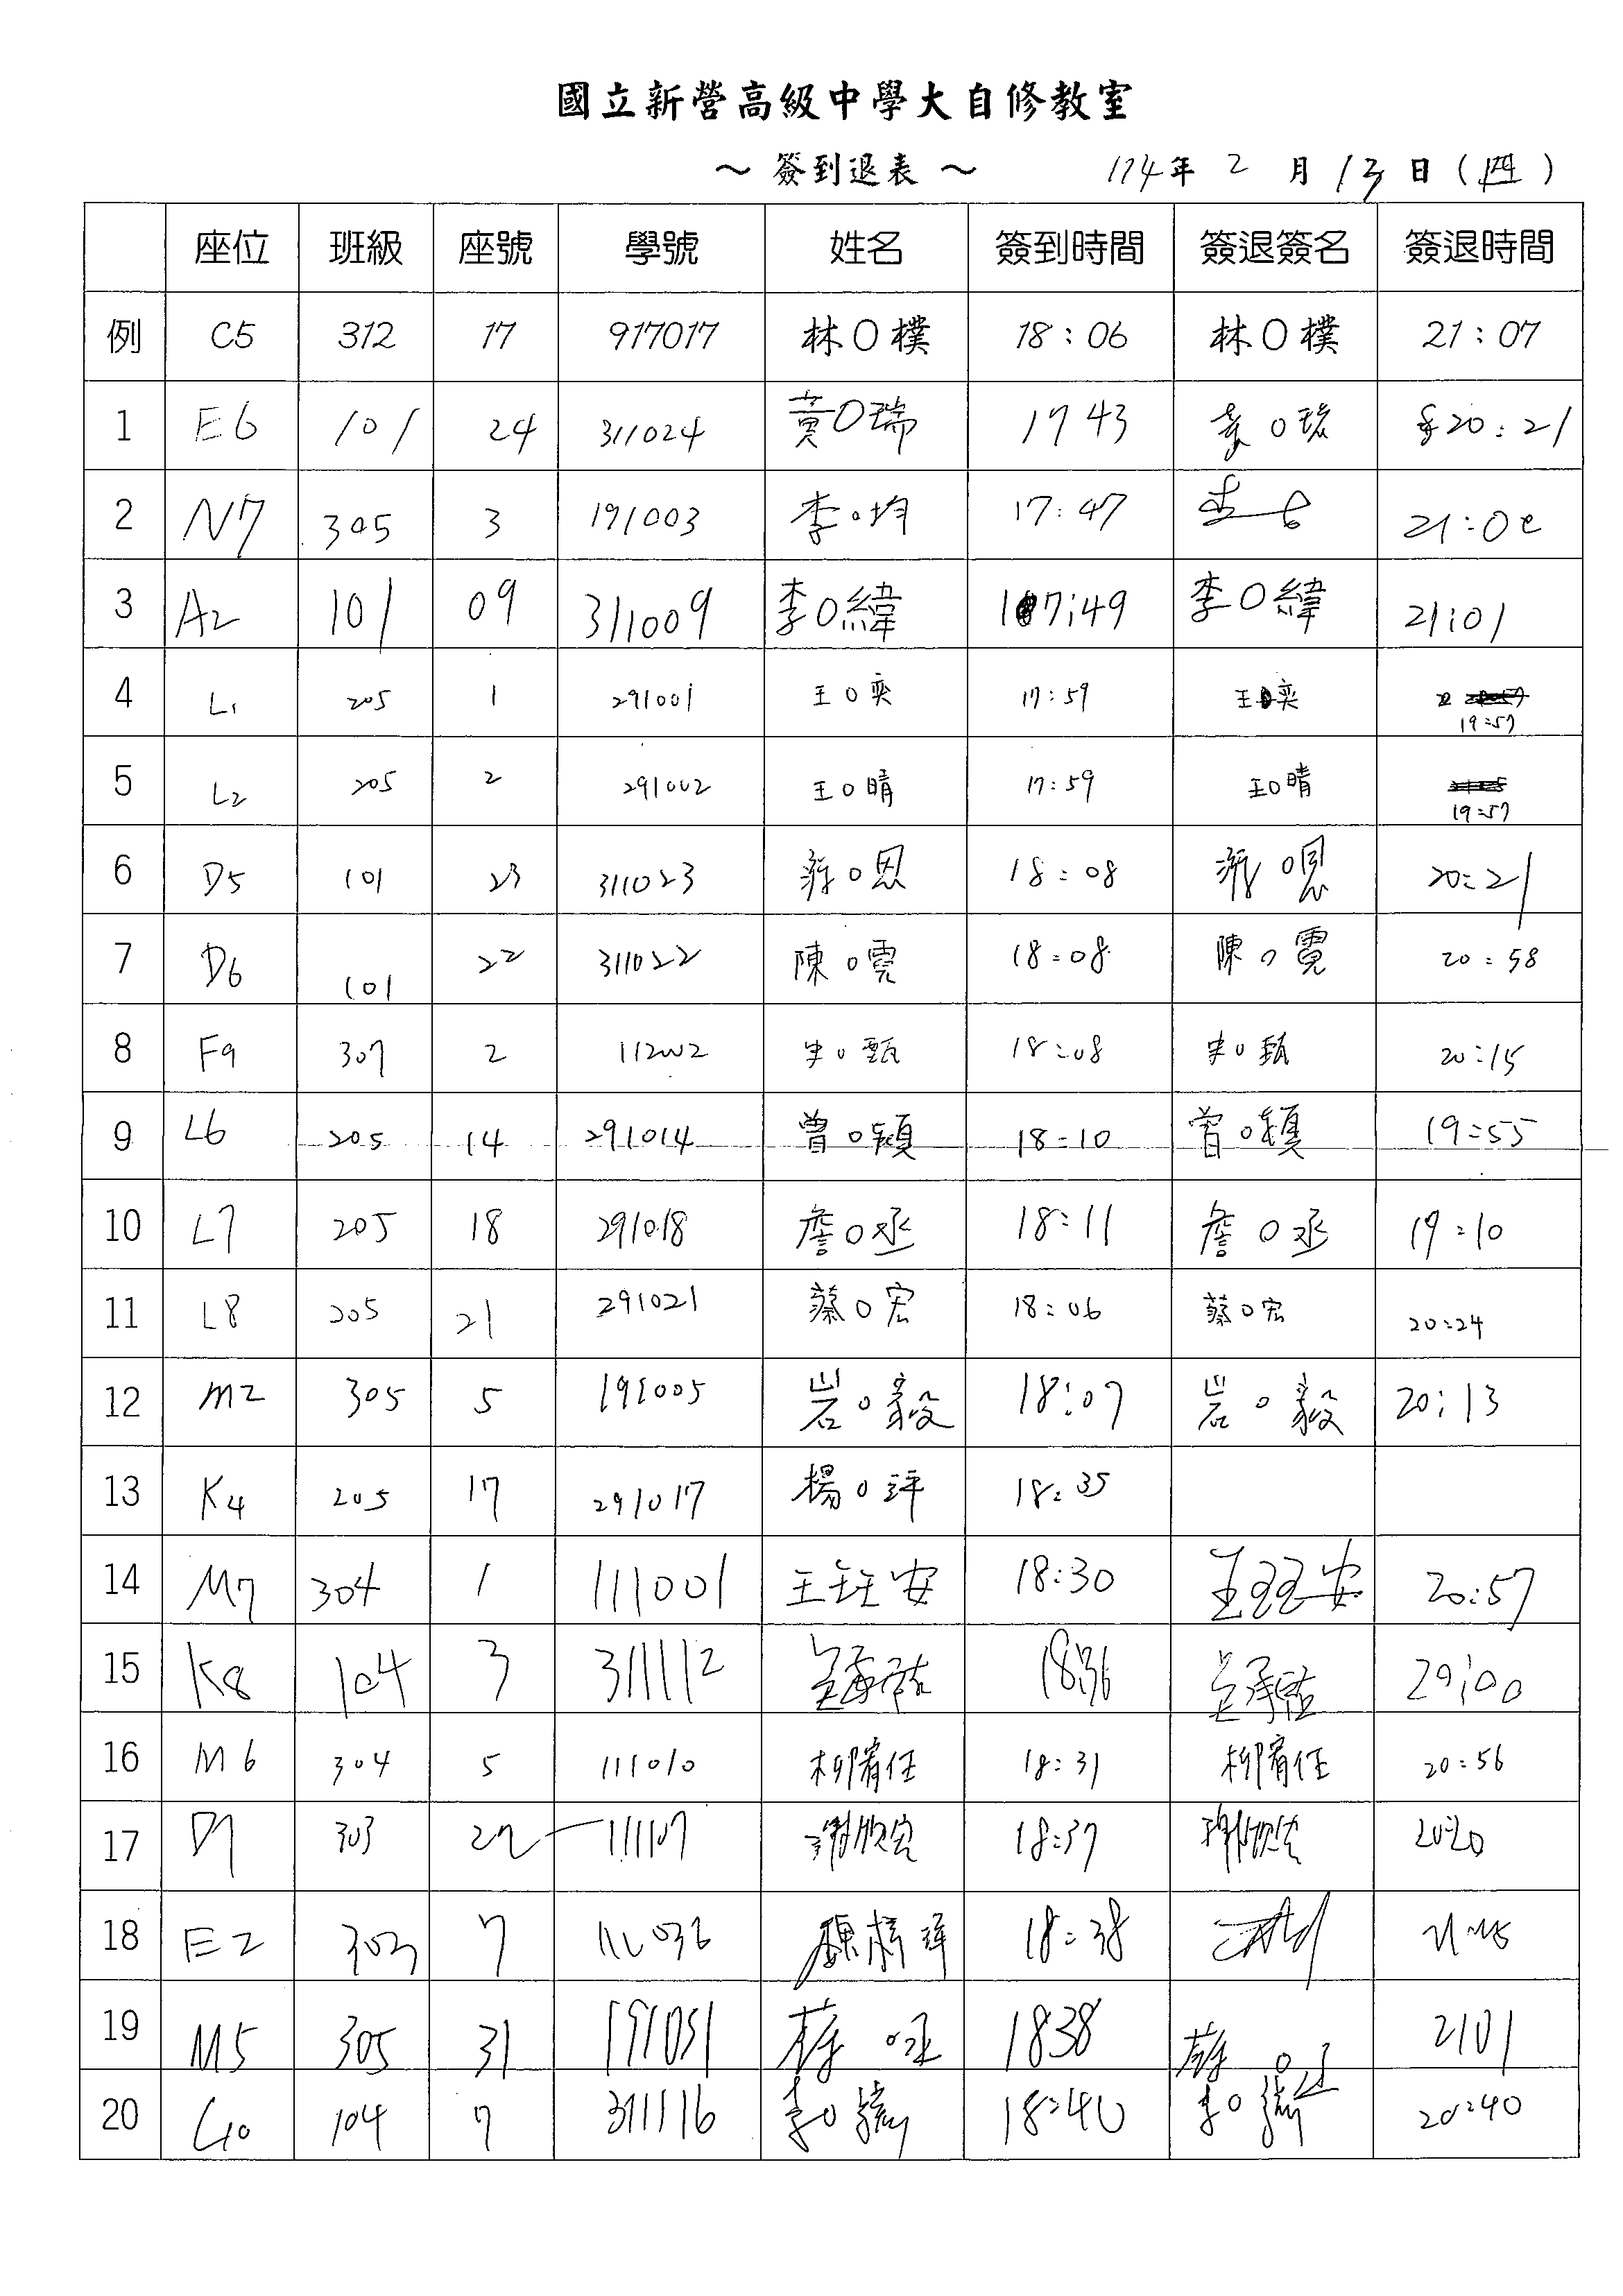 國立新營高級中學大自修教室
～ 簽到退表 ～ 114年 2 月 13 日 (四)
座位 班級 座號 學號 姓名 簽到時間 簽退簽名 簽退時間
例 C5 312 17 917017 林O樸 18:06 林O樸 21:07
1 E6 101 24 311024 黃O瑞 17 43 20:21
2 N7 305 3 191003 李O均 17:47
3 A2 101 09 311009 李O緯 17:49 李O緯 21:01
4 L1 205 1 291001 王O奕 17:59 王O奕 19:57
5 L2 205 2 291002 王O晴 17:59 王O晴 19:57
6 D5 101 23 311023 O恩 18:08 O恩 20:21
7 D6 101 22 311022 陳O霓 18:08 陳O霓 20:58
8 F9 307 2 112002 O甄 18:08 O甄 20:15
9 L6 205 14 291014 曾O穎 18:10 曾O穎 19:55
10 L7 205 18 291018 詹O丞 18:11 詹O丞 19:10
11 L8 205 21 291021 蔡O宏 18:06 蔡O宏 20:24
12 M2 305 5 191005 岩O毅 18:07 岩O毅 20:13
13 K4 205 17 291017 楊O萍 18:35
14 M7 304 1 111001 王鈺安 18:30 20:57
15 K8 104 3 311112 18:36
16 M6 304 5 111010 柳宥任 18:31 柳宥任 20:56
17 D7 303 111107 18:37 20:20
18 E2 303 7 18:38
19 M5 305 31 191031 1838 2101
20 104 7 311116 李O 18:40 李O 20:40